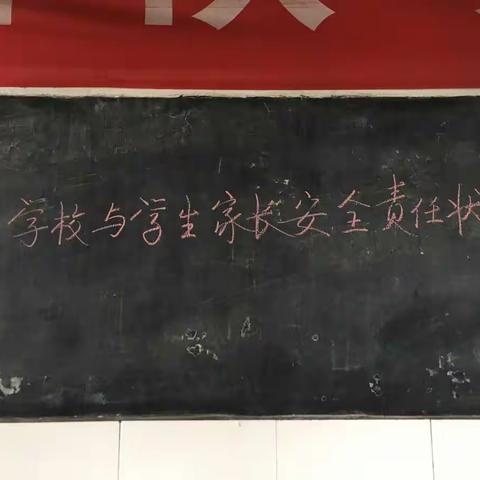 学校与学生家长安全责任状